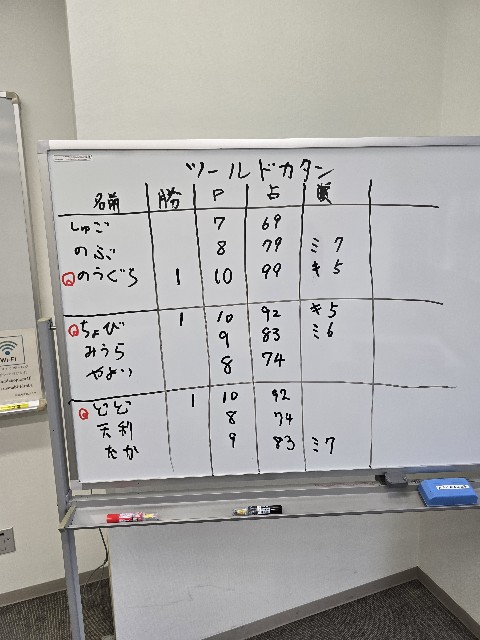 ツールドカタン
名前 勝 P 占 賞
しゅご 7 69
のぶ 8 79 ミ 7
Q のうぐち 1 10 99 キ 5
Q ちょび 1 10 92 キ 5
みうら 9 83 ミ 6
やよい 8 74
Q どど 1 10 92
天利 8 74
たか 9 83 ミ 7
Wi-Fi